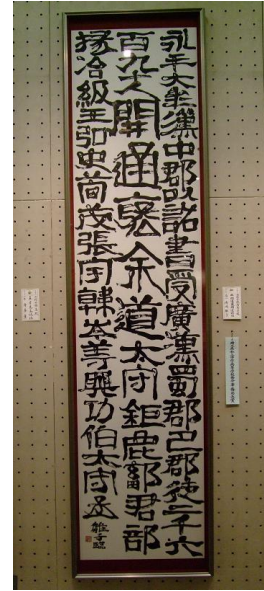 永平六年漢中郡以詔書受廣漢蜀郡巴郡徒二千六
百九十人開通褒余道太守鉅鹿鄐君部
掾治級王弘史荀茂張宇韓岑等興功作太守丞
臨